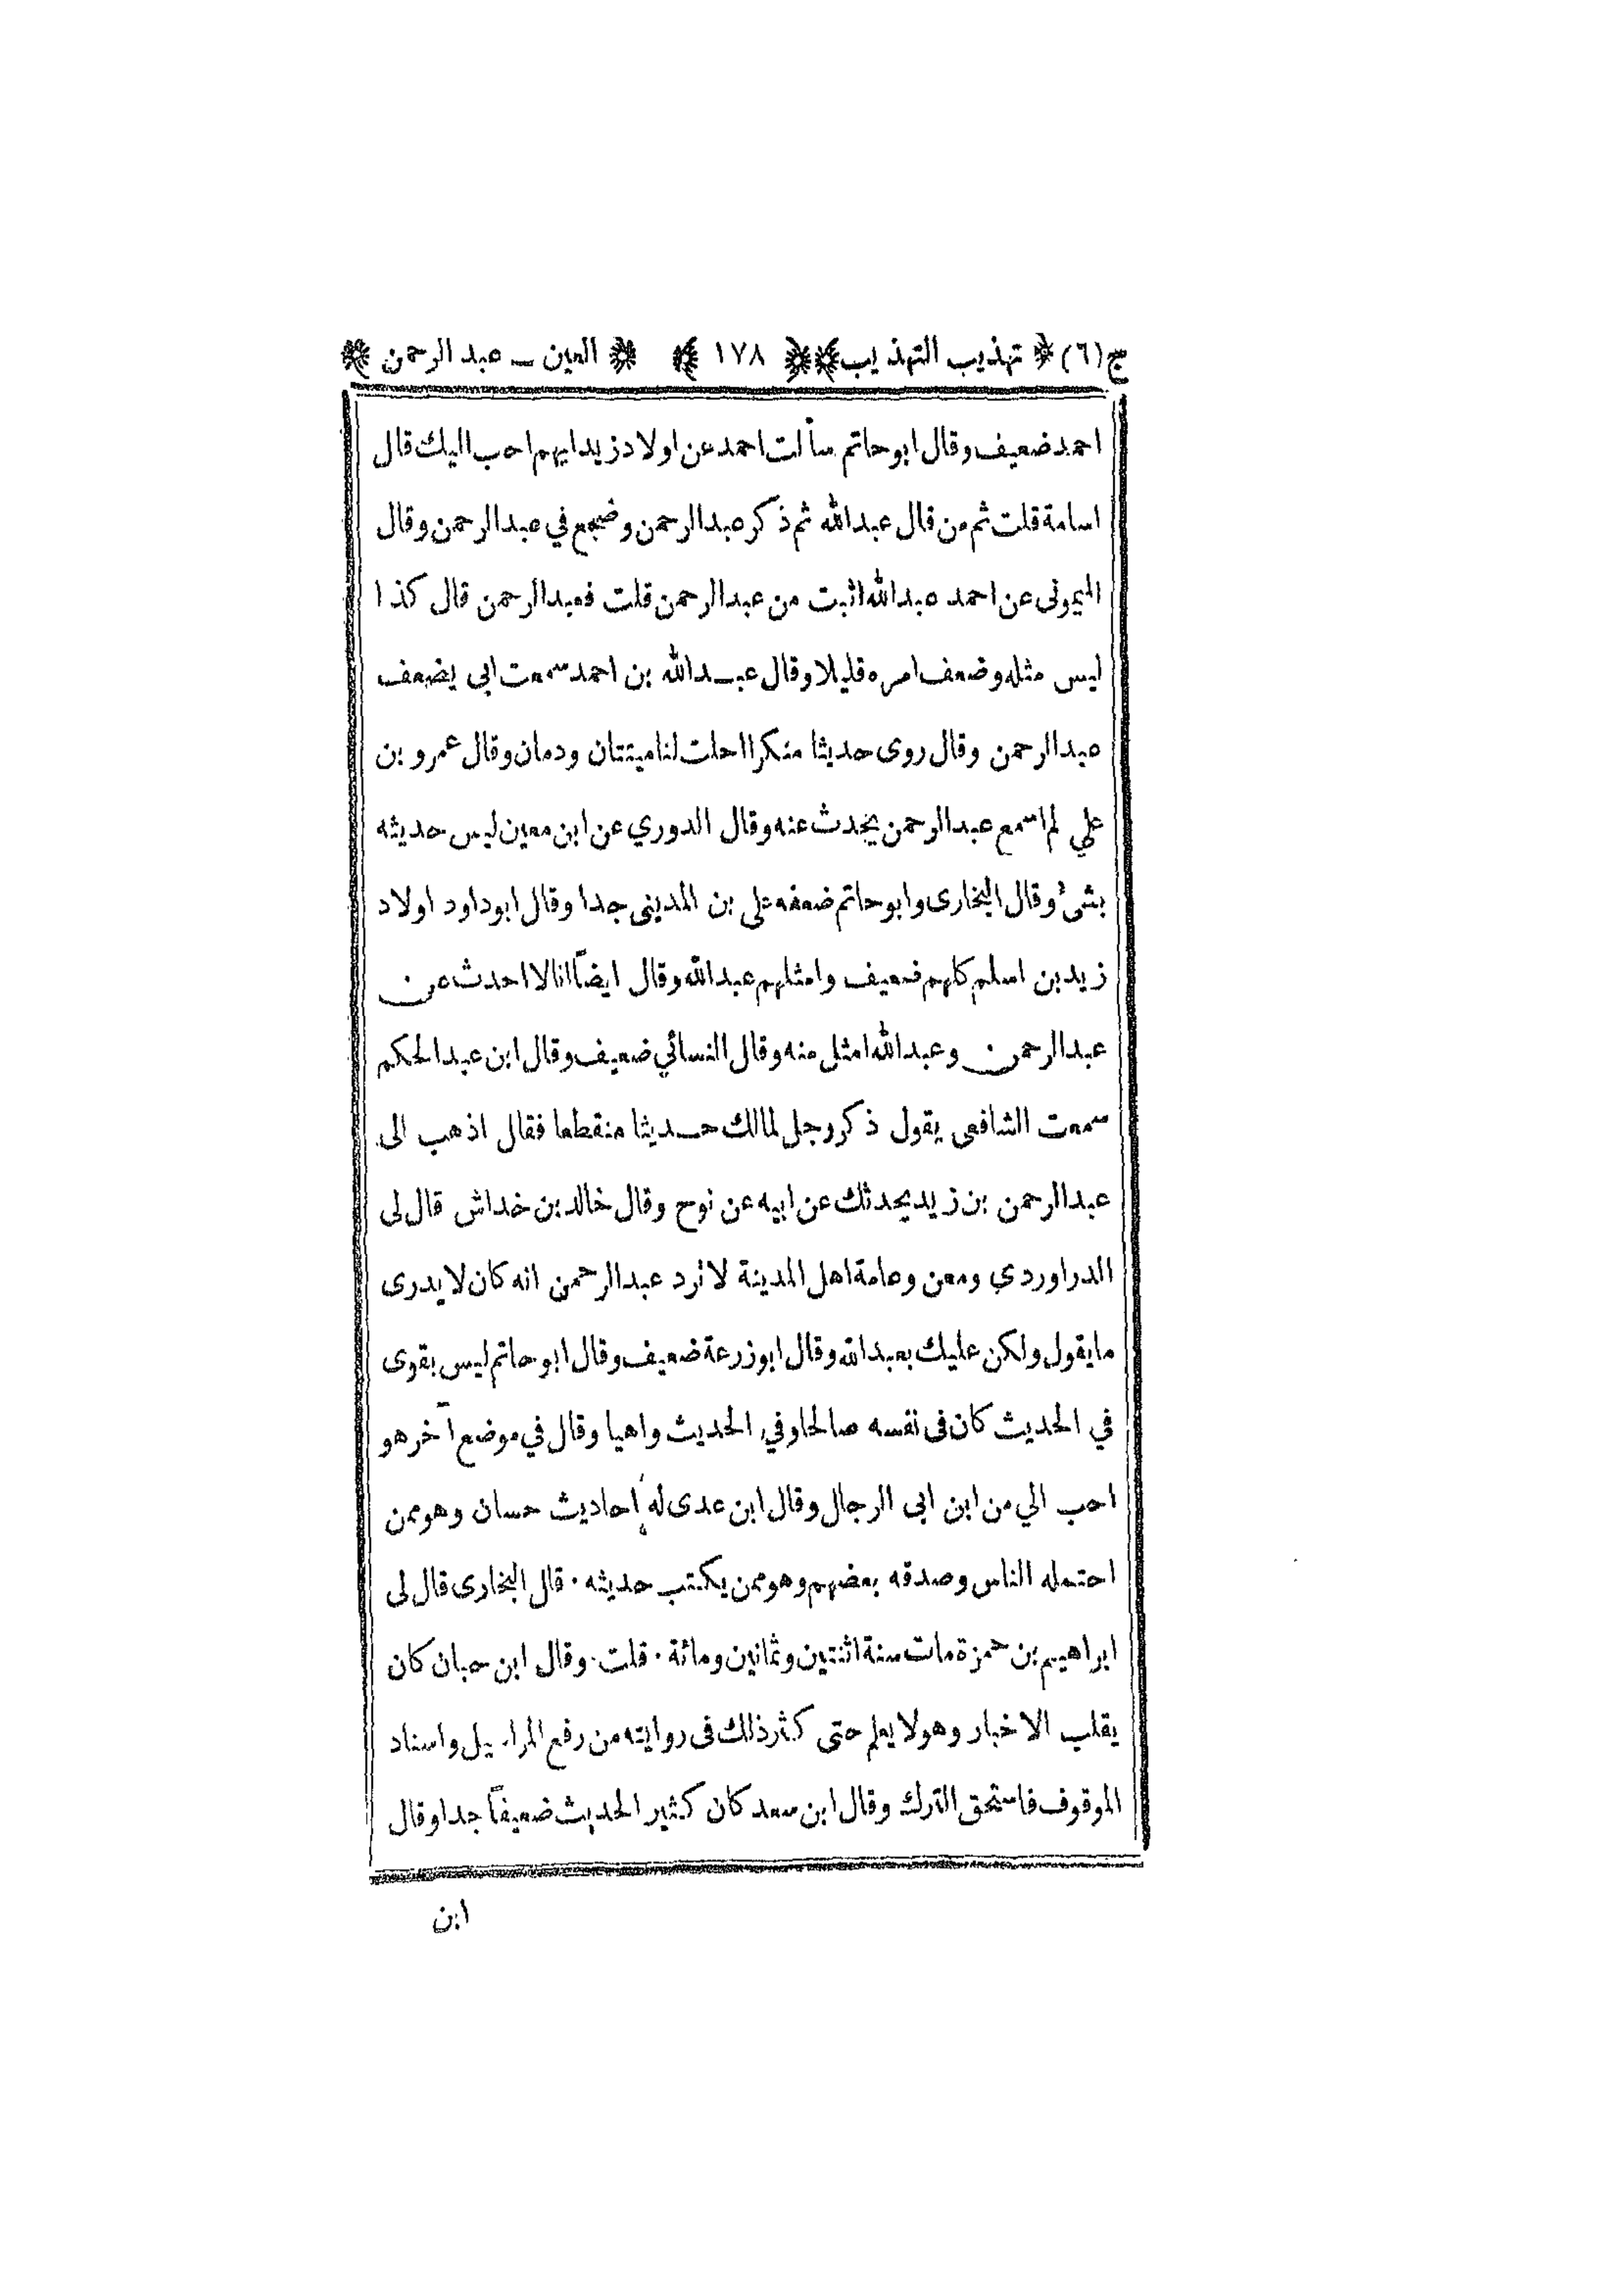 ج(٦) تهذيب التهذيب ١٧٨ العين ـ عبد الرحمن
احمد ضعيف وقال ابو حاتم سألت احمد عن اولاد زيد ايهم احب اليك قال
اسامة قلت ثم من قال عبدالله ثم ذكر عبدالرحمن وضجع في عبدالرحمن وقال
الميمونى عن احمد عبدالله اثبت من عبدالرحمن قلت فعبدالرحمن قال كذا
ليس مثله وضعف امره قليلا وقال عبدالله بن احمد سمعت ابى يضعف
عبدالرحمن وقال روى حديثا منكرا احلت لنا ميتتان ودمان وقال عمرو بن
علي لم اسمع عبدالرحمن يحدث عنه وقال الدوري عن ابن معين ليس حديثه
بشئ وقال البخارى وابو حاتم ضعفه على بن المدينى جدا وقال ابوداود اولاد
زيد بن اسلم كلهم ضعيف وامثلهم عبدالله وقال ايضاً انا لا احدث عن
عبدالرحمن وعبدالله امثل منه وقال النسائي ضعيف وقال ابن عبدالحكم
سمعت الشافعى يقول ذكر رجل لمالك حديثا منقطعا فقال اذهب الى
عبدالرحمن بن زيد يحدثك عن ابيه عن نوح وقال خالد بن خداش قال لى
الدراوردي ومعن وعامة اهل المدينة لا ترد عبدالرحمن انه كان لا يدرى
ما يقول ولكن عليك بعبدالله وقال ابو زرعة ضعيف وقال ابو حاتم ليس بقوى
في الحديث كان فى نفسه صالحا وفي الحديث واهيا وقال في موضع آخر هو
احب الي من ابن ابى الرجال وقال ابن عدى له احاديث حسان وهو ممن
احتمله الناس وصدقه بعضهم وهو ممن يكتب حديثه . قال البخارى قال لى
ابراهيم بن حمزة مات سنة اثنتين وثمانين ومائة . قلت . وقال ابن حبان كان
يقلب الاخبار وهو لا يعلم حتى كثر ذلك فى روايته من رفع المراسيل واسناد
الموقوف فاستحق الترك وقال ابن سعد كان كثير الحديث ضعيفاً جدا وقال
ابن